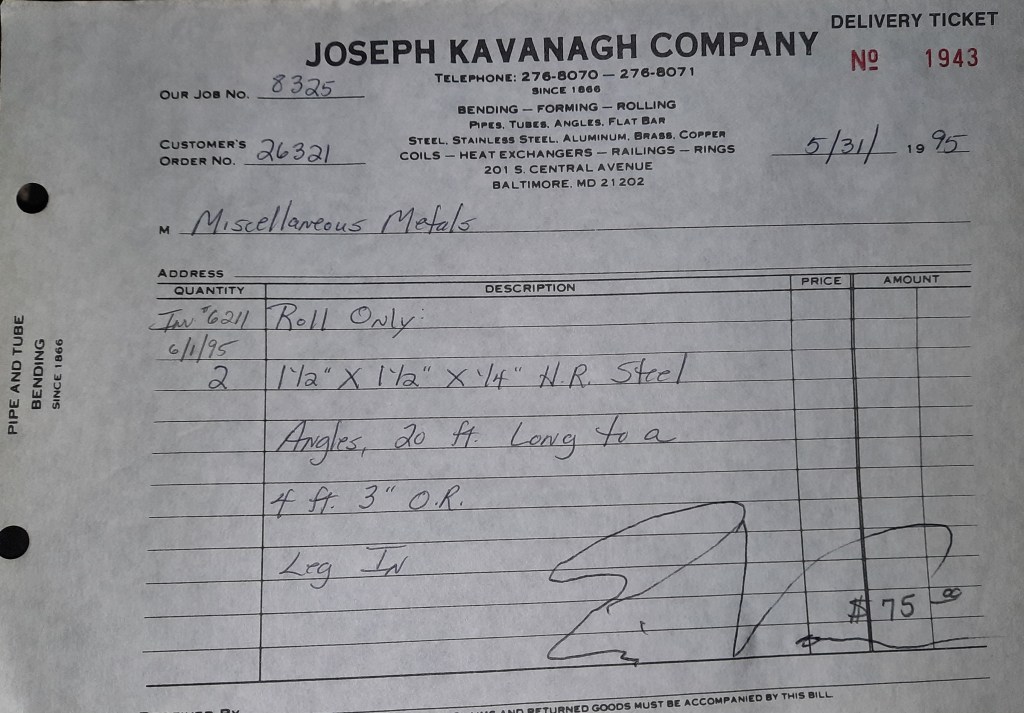 DELIVERY TICKET
JOSEPH KAVANAGH COMPANY
Nº 1943
TELEPHONE: 276-8070 — 276-8071
SINCE 1866
OUR JOB NO. 8325
BENDING — FORMING — ROLLING
PIPES, TUBES, ANGLES, FLAT BAR
STEEL, STAINLESS STEEL, ALUMINUM, BRASS, COPPER
CUSTOMER'S
ORDER NO. 26321
COILS — HEAT EXCHANGERS — RAILINGS — RINGS
5/31/ 1995
201 S. CENTRAL AVENUE
BALTIMORE, MD 21202
M Miscellaneous Metals
ADDRESS
QUANTITY DESCRIPTION PRICE AMOUNT
Inv #6211 Roll Only:
6/1/95
2 1 1/2" X 1 1/2" X 1/4" H.R. Steel
Angles, 20 ft. Long to a
4 ft. 3" O.R.
Leg In
$ 75 00
PIPE AND TUBE
BENDING
SINCE 1866
AND RETURNED GOODS MUST BE ACCOMPANIED BY THIS BILL